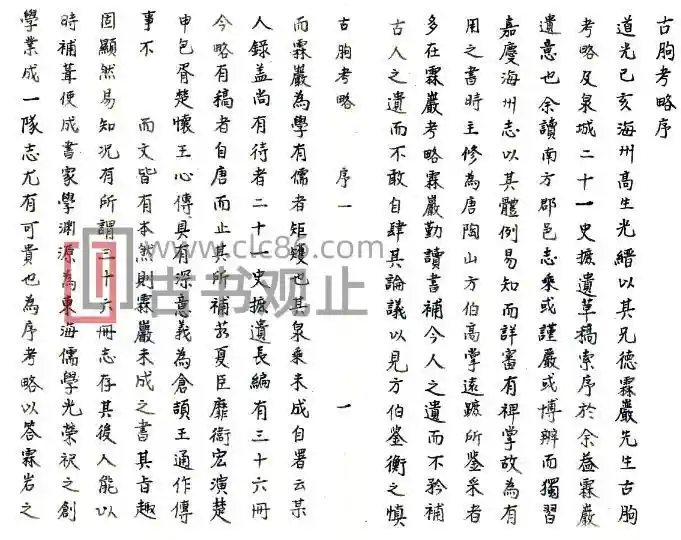 古朐考略序
道光己亥海州高生光縉以其兄德霖巖先生古朐
考略及泉城二十一史摭遺草稿索序於余益霖巖
遺意也余讀南方郡邑志乘或謹嚴或博辦而獨習
嘉慶海州志以其體例易知而詳審有裨掌故為有
用之書時主修為唐陶山方伯高掌遠蹠所鉴采者
多在霖巖考略霖巖勤讀書補今人之遺而不矜補
古人之遺而不敢自肆其論議以見方伯鉴衡之慎
古朐考略 序一 一
而霖巖為學有儒者矩矱也其泉乘未成自署云某
人錄盖尚有待者二十一史摭遺長編有三十六冊
今略有稿者自唐而止其所補若夏臣靡衞宏演楚
申包胥楚懷王心傳具有深意義為倉頡王通作傳
事不 而文皆有本然則霖巖未成之書其旨趣
固顯然易知况有所謂三十六冊志存其後人能以
時補葺便成書家學渊源為東海儒學光榮祝之創
學業成一隊志尤有可貴也為序考略以答霖岩之
www.clc86.com
古书观止